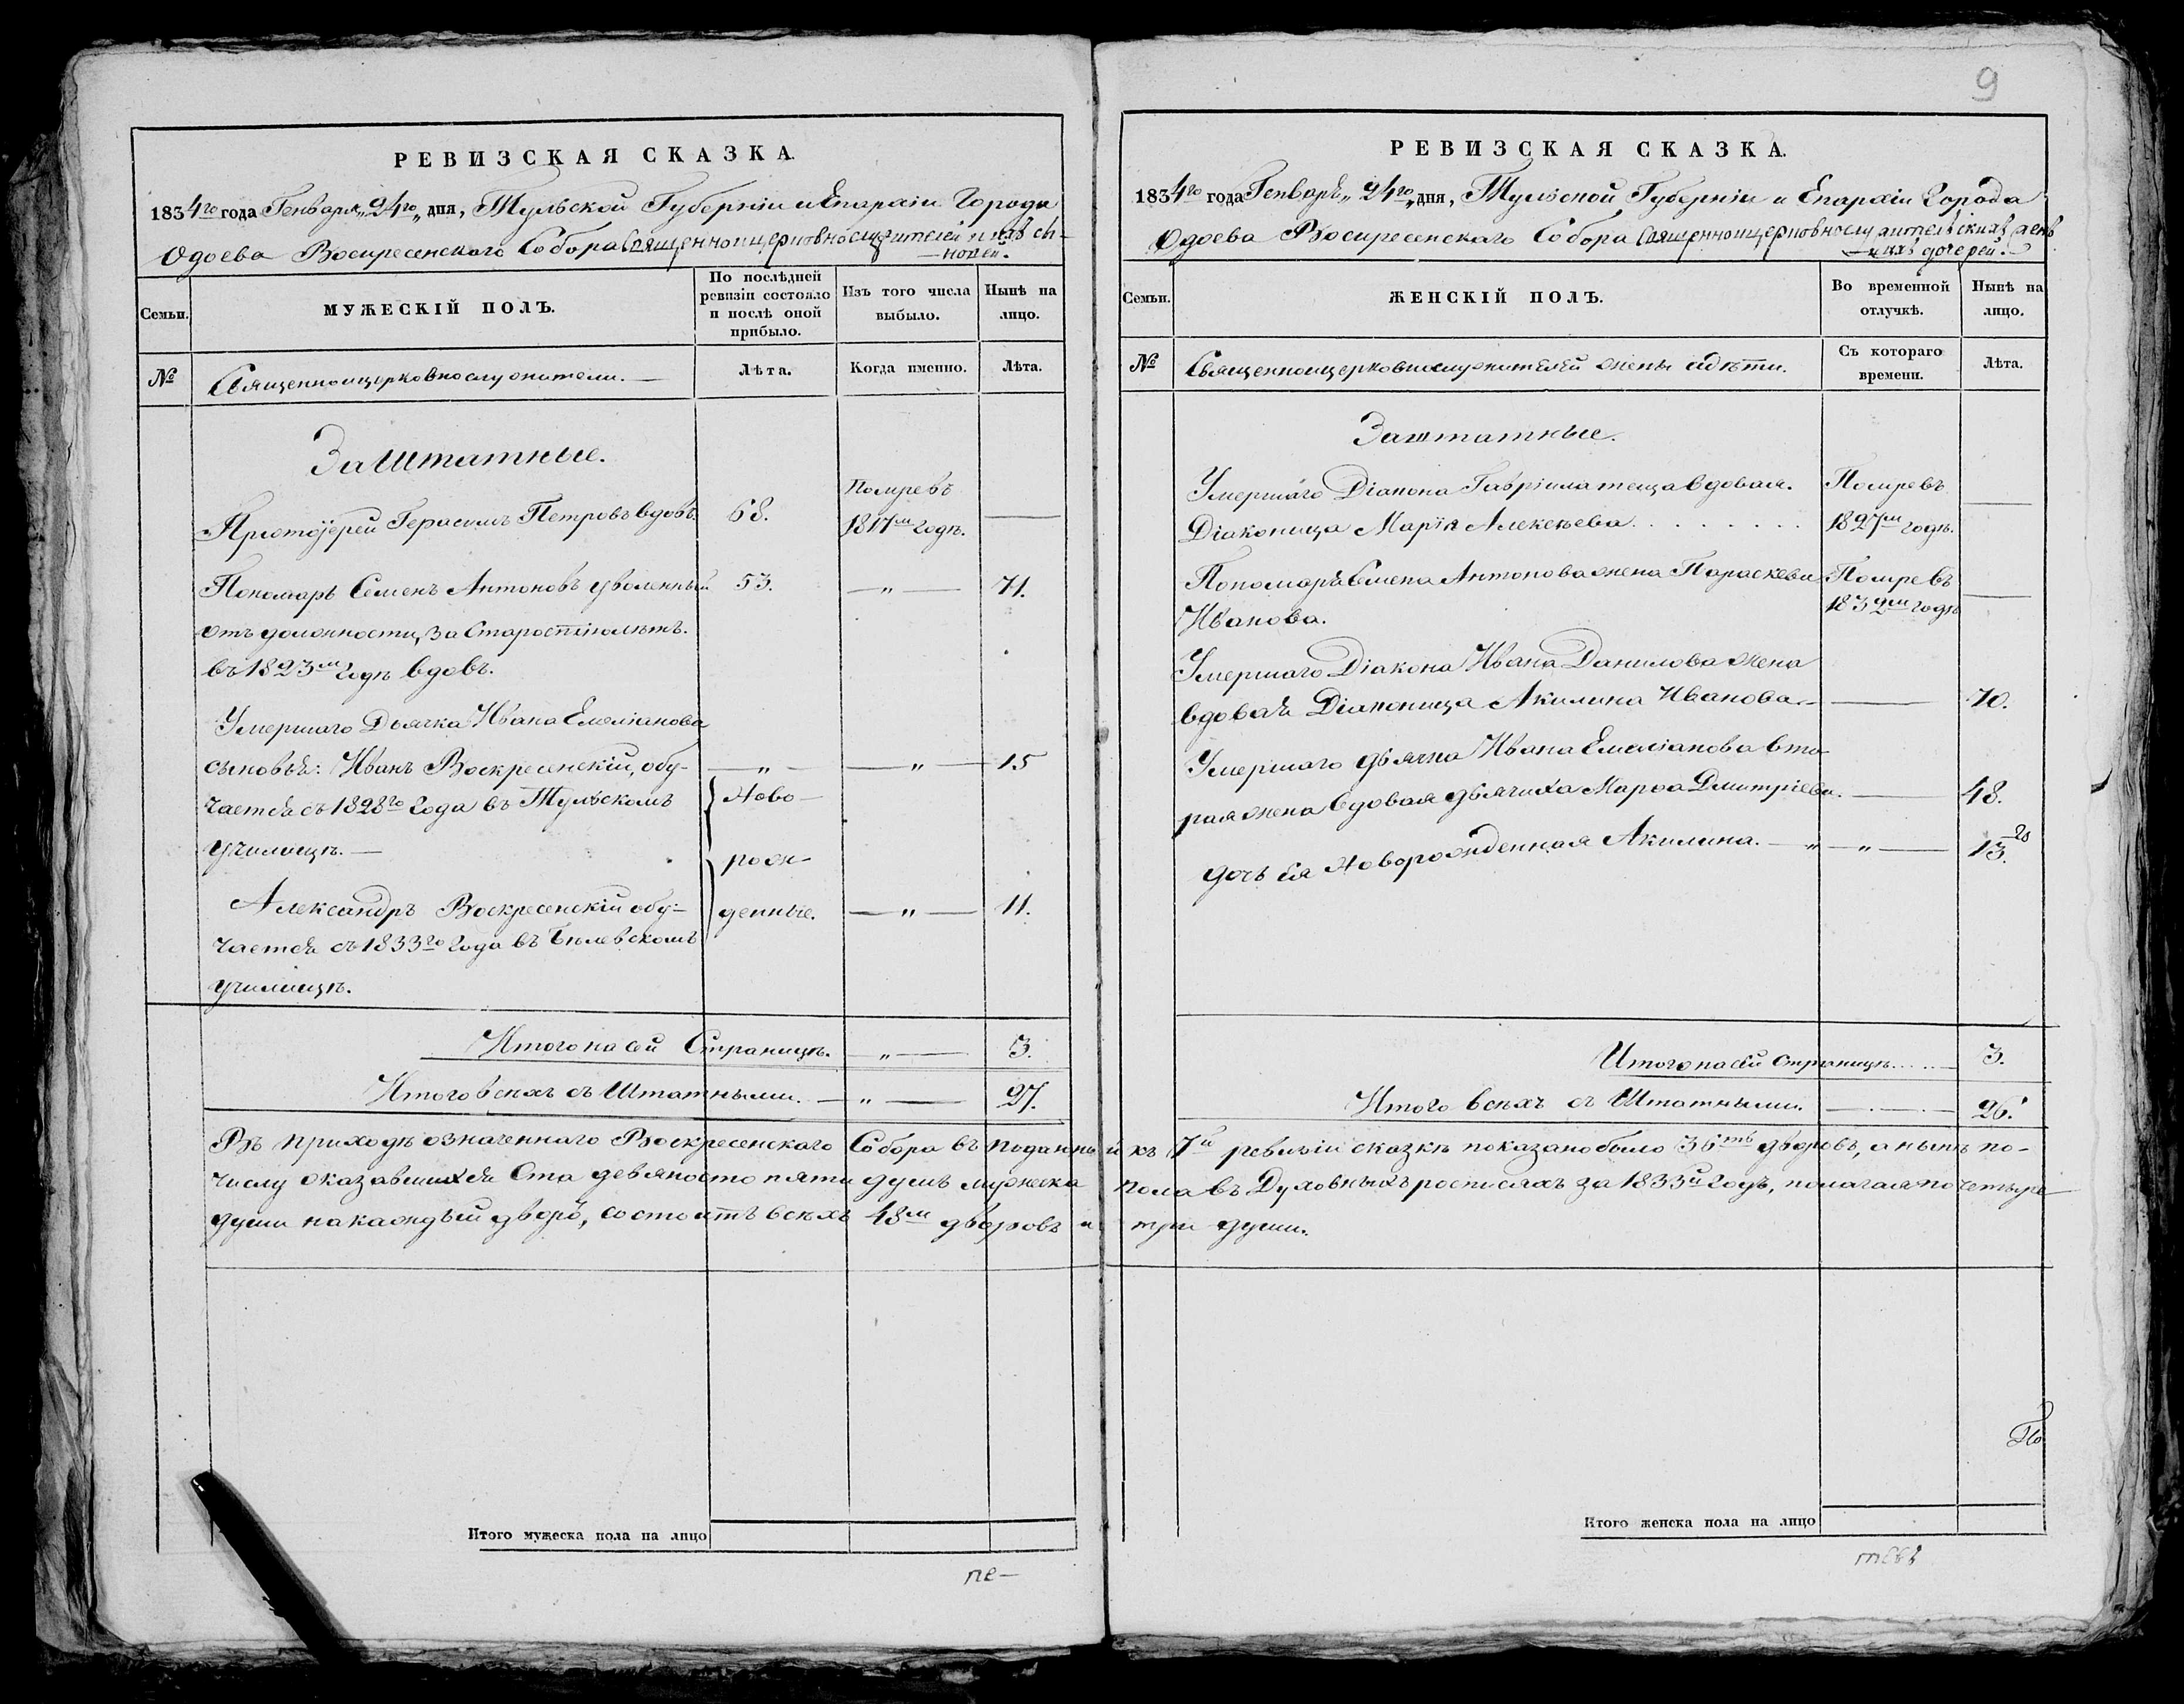 РЕВИЗСКАЯ СКАЗКА.
1834го года Генваря „24го„ дня, Тульской Губерніи и Епархіи Города
Одоева Воскресенского Собора Священноицерковнослужителей и ихъ сы-
новей.
Семьи.
МУЖЕСКІЙ ПОЛЪ.
По послѣдней
ревизіи состояло
и послѣ оной
прибыло.
Изъ того числа
выбыло.
Нынѣ на
лицо.
№
Священноицерковнослужители.—
Лѣта.
Когда именно.
Лѣта.
Заштатные.
Протоіерей Герасимъ Петровъ вдовъ. 68. Помре въ 1817м годѣ. —
Пономарь Семенъ Антоновъ уволенный 53. —„— 71.
отъ должности, за Старостію лѣтъ.
въ 1823м годѣ вдовъ.
Умершаго Дьячка Ивана Емеліанова
сыновья: Иванъ Воскресенскій, обу- —„— —„— 15
чается съ 1828го года въ Тульскомъ Ново-
училищѣ.— рож-
Александръ Воскресенскій обу- денные. —„— 11.
чается съ 1833го года въ Бѣлевскомъ
училищѣ.
Итого на сей Страницѣ. —„— 3.
Итого всѣхъ съ Штатными. —„— 27.
Въ приходѣ означеннаго Воскресенскаго Собора въ поданной къ 7й ревизіи сказкѣ показано было 36ть дворовъ, а нынѣ по-
числу оказавшихся Ста девяносто пяти душъ мужеска пола въ Духовныхъ росписяхъ за 1833й годъ, полагая по четыре
души на каждый дворъ, состоитъ всѣхъ 48м дворовъ и три души.
Итого мужеска пола на лицо
пе—
9
РЕВИЗСКАЯ СКАЗКА.
1834го года Генваря „24го„ дня, Тульской Губерніи и Епархіи Города
Одоева Воскресенскаго Собора Священноицерковнослужительскихъ женъ
и ихъ дочерей.
Семьи.
ЖЕНСКІЙ ПОЛЪ.
Во временной
отлучкѣ.
Нынѣ на
лицо.
№
Священноицерковнослужителей жены и дѣти.
Съ котораго
времени.
Лѣта.
Заштатные.
Умершаго Діакона Гавріила теща вдовая. Помре въ
Діаконица Марія Алексѣева. . . . . . . . . 1827м годѣ. —
Пономаря Семена Антонова жена Параскева Помре въ
Иванова. 1832м годѣ —
Умершаго Діакона Ивана Данилова жена
вдовая Діаконица Акилина Иванова— — 70.
Умершаго дьячка Ивана Емеліанова вто-
рая жена вдовая дьячиха Марѳа Дмитріева. — 48.
дочь ея новорожденная Акилина. —„—„— 13.
Итого на сей Страницѣ. . . . . — 3.
Итого всѣхъ съ Штатными. — 26.
По
Итого женска пола на лицо